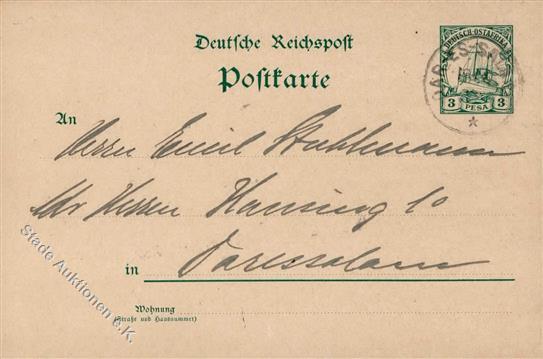 Deutsche Reichspost
Postkarte
DEUTSCH-OSTAFRIKA
DAR-ES-SALAM
3 PESA 3
An
Herrn Emil Stuhlmann
Herren Hansing
in Daressalam
Wohnung
(Straße und Hausnummer)
Stade Auktionen e.K.